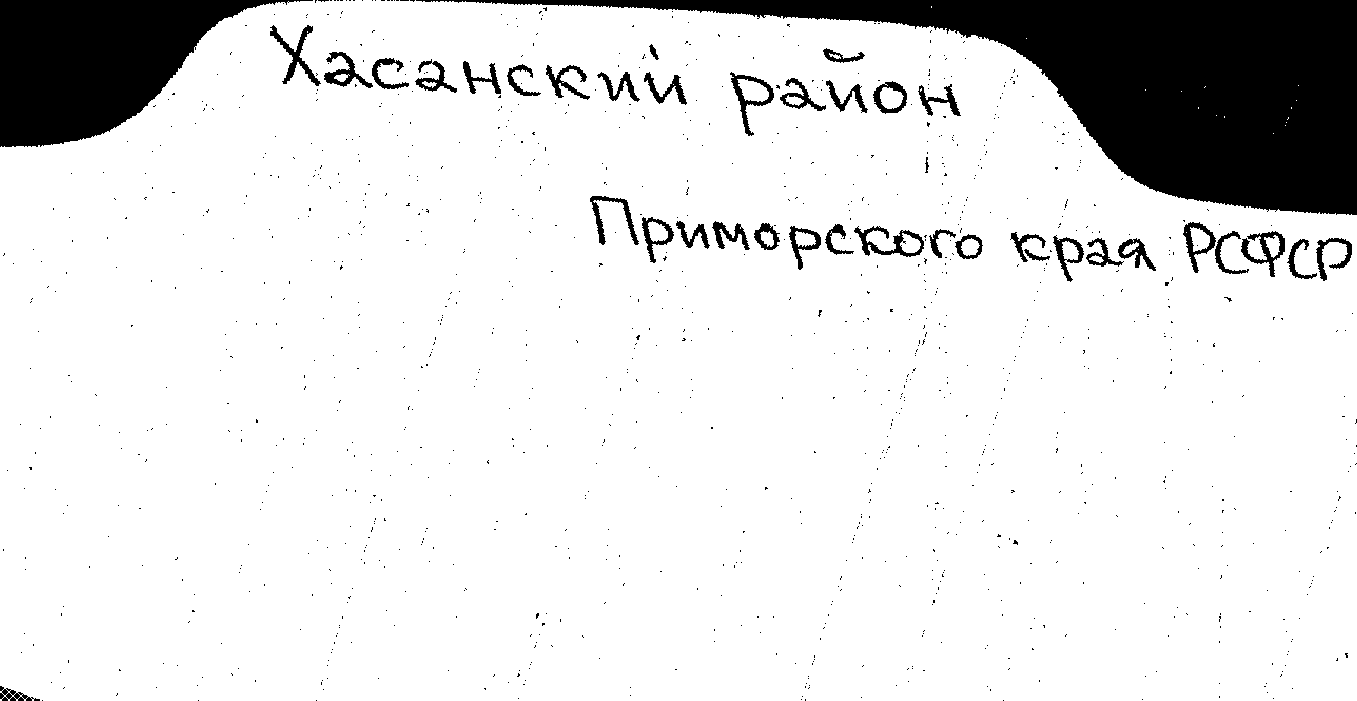 Хасанский район
Приморского края РСФСР